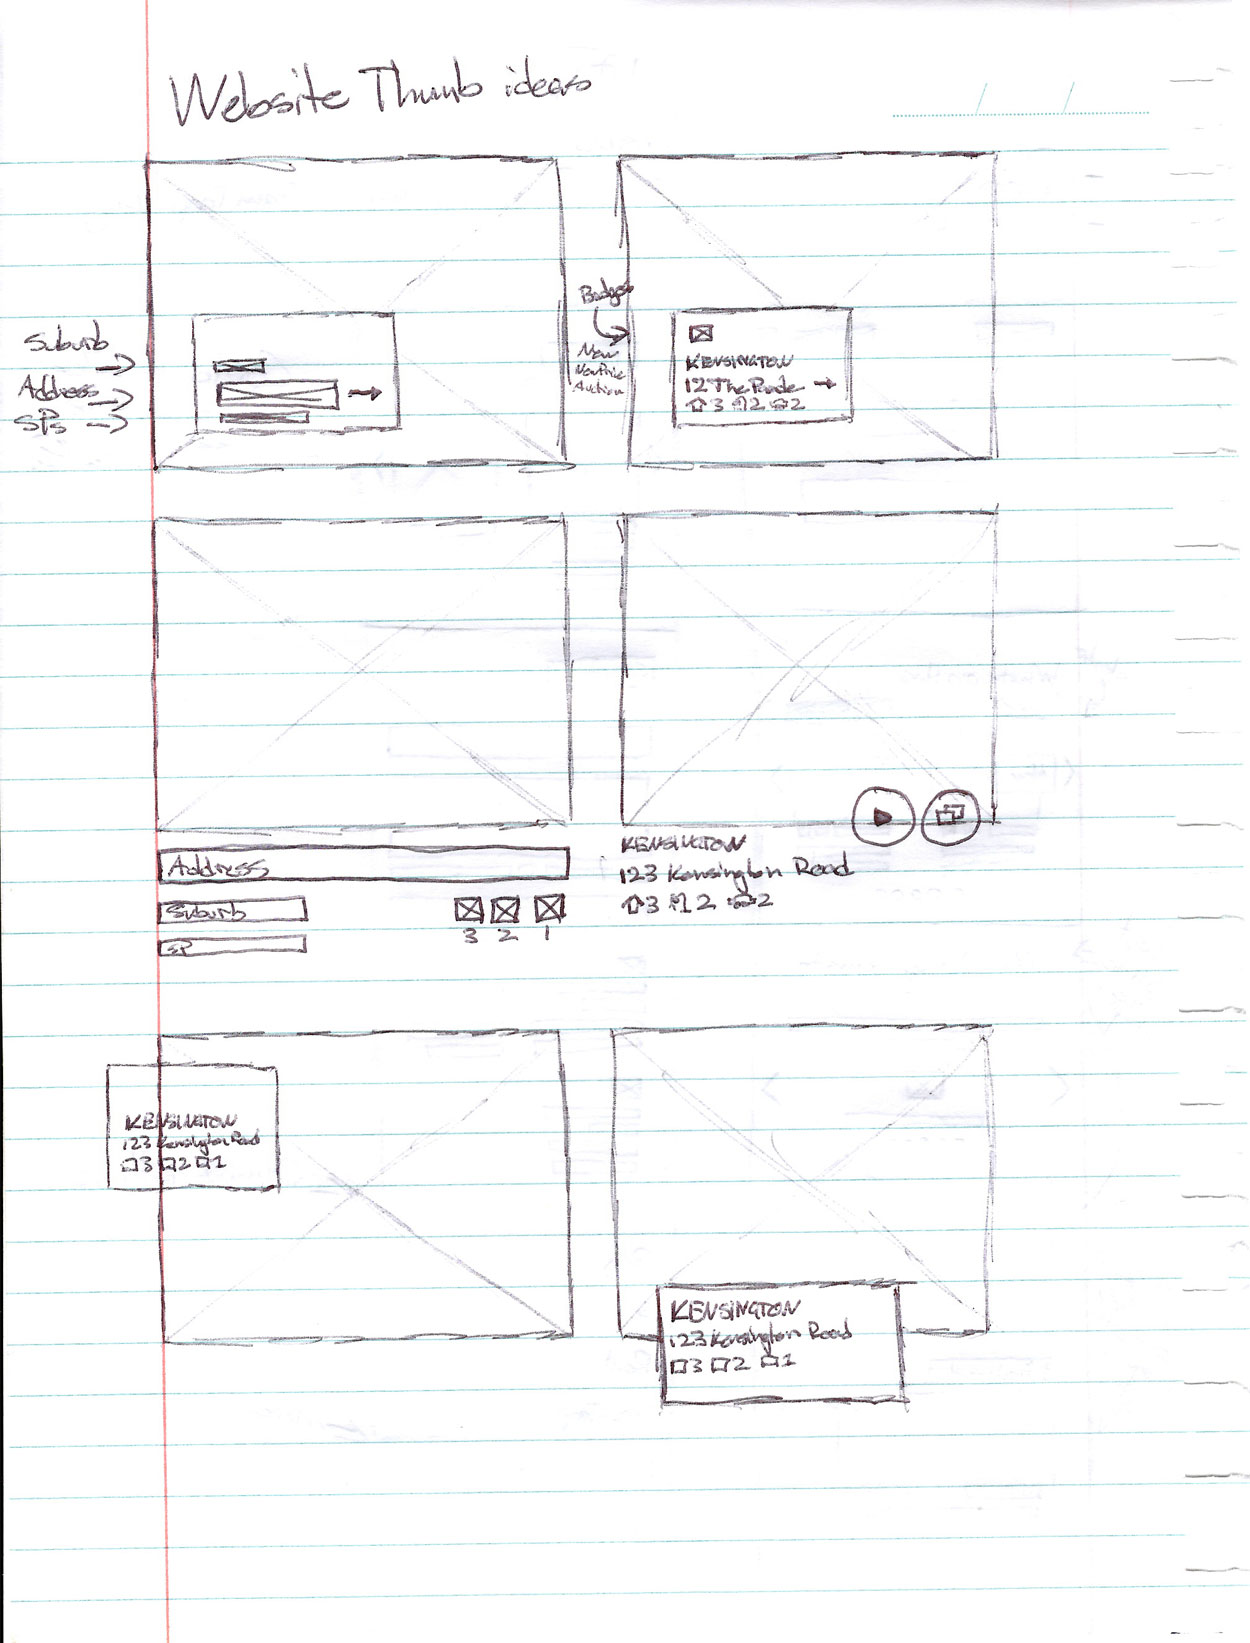 Website Thumb ideas
Suburb
Address
SPs
Badges
New
New Price
Auction
KENSINGTON
12 The Parade
3 2 2
Address
Suburb
SP
3 2 1
KENSINGTON
123 Kensington Road
3 2 2
KENSINGTON
123 Kensington Road
3 2 1
KENSINGTON
123 Kensington Road
3 2 1